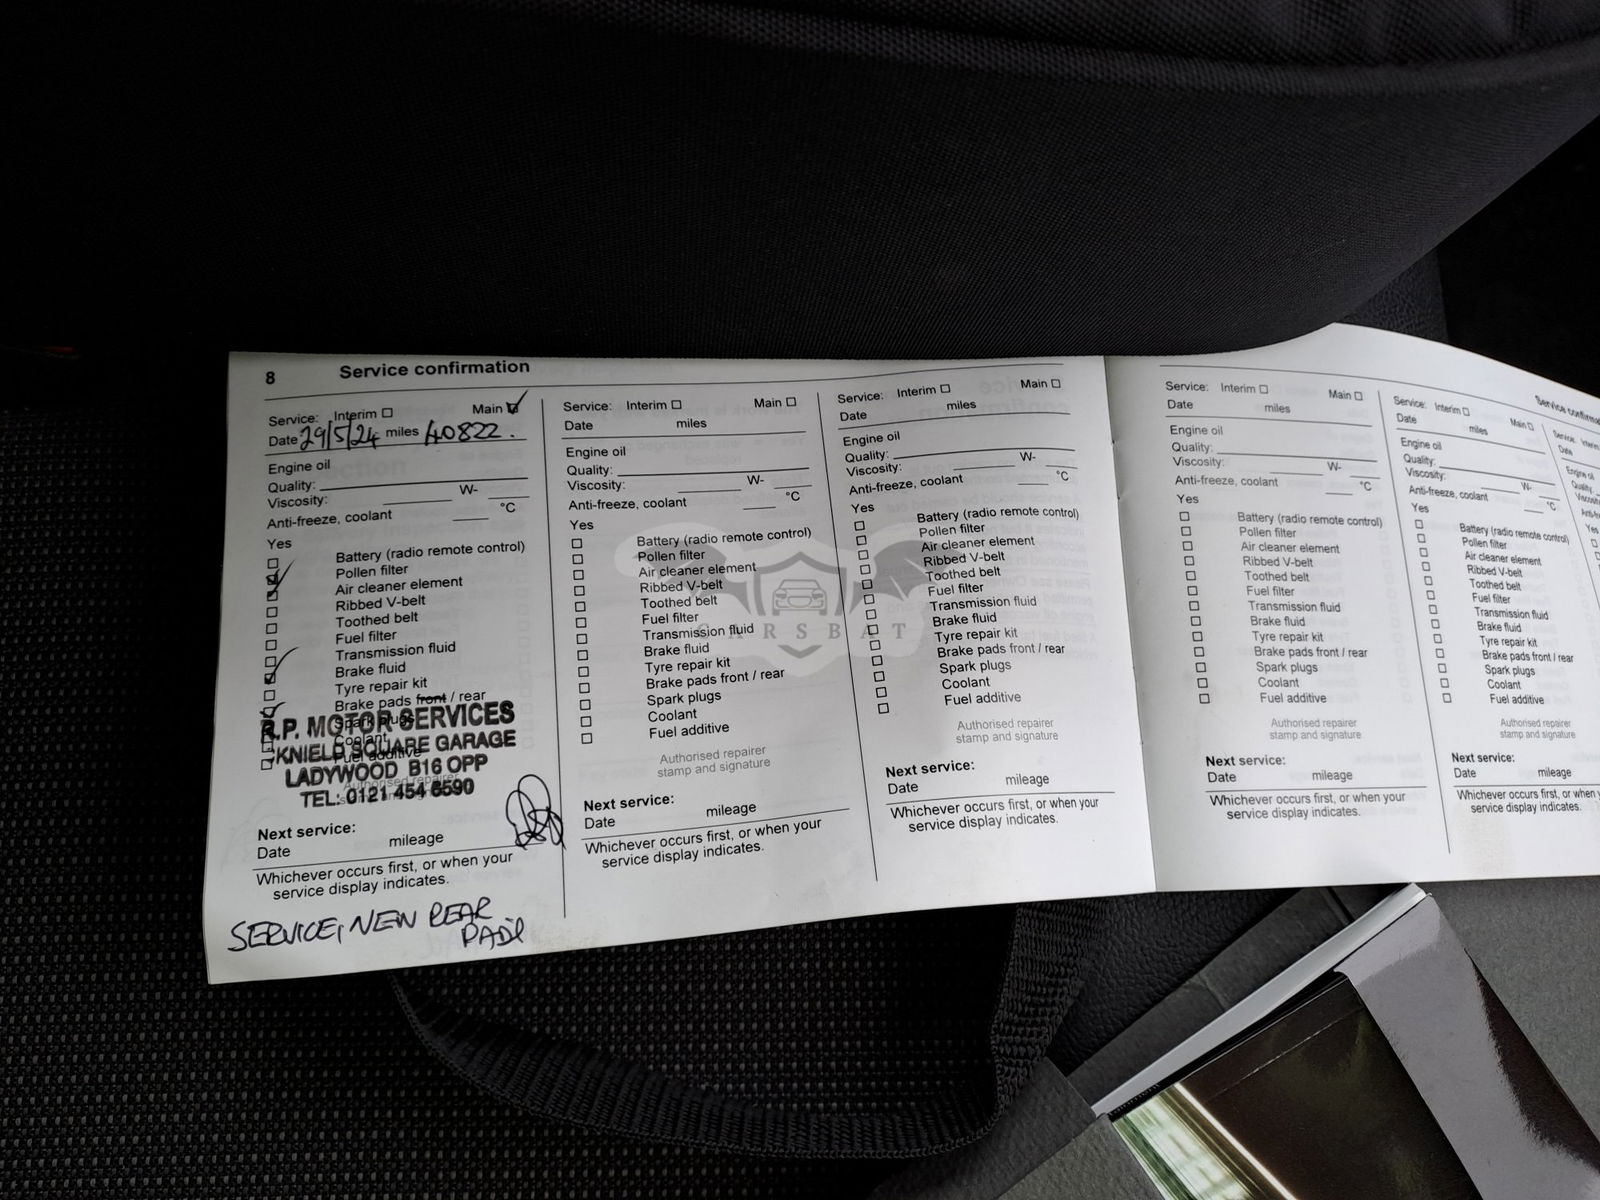 8 Service confirmation
Service: Interim Main
Date 29/5/24 miles 40822.
Engine oil
Quality:
Viscosity: W-
Anti-freeze, coolant °C
Yes
Battery (radio remote control)
Pollen filter
Air cleaner element
Ribbed V-belt
Toothed belt
Fuel filter
Transmission fluid
Brake fluid
Tyre repair kit
Brake pads front / rear
Spark plugs
Coolant
Fuel additive
Authorised repairer
R.P. MOTOR SERVICES
SQUARE GARAGE
LADYWOOD B16 OPP
TEL: 0121 454 6590
Next service:
Date mileage
Whichever occurs first, or when your
service display indicates.
SERVICE, NEW REAR
PADS
Service: Interim Main
Date miles
Engine oil
Quality:
Viscosity: W-
Anti-freeze, coolant °C
Yes
Battery (radio remote control)
Pollen filter
Air cleaner element
Ribbed V-belt
Toothed belt
Fuel filter
Transmission fluid
Brake fluid
Tyre repair kit
Brake pads front / rear
Spark plugs
Coolant
Fuel additive
Authorised repairer
stamp and signature
Next service:
Date mileage
Whichever occurs first, or when your
service display indicates.
Service: Interim Main
Date miles
Engine oil
Quality:
Viscosity: W-
Anti-freeze, coolant °C
Yes
Battery (radio remote control)
Pollen filter
Air cleaner element
Ribbed V-belt
Toothed belt
Fuel filter
Transmission fluid
Brake fluid
Tyre repair kit
Brake pads front / rear
Spark plugs
Coolant
Fuel additive
Authorised repairer
stamp and signature
Next service:
Date mileage
Whichever occurs first, or when your
service display indicates.
CARSBAT
Service: Interim Main
Date miles
Engine oil
Quality:
Viscosity: W-
Anti-freeze, coolant °C
Yes
Battery (radio remote control)
Pollen filter
Air cleaner element
Ribbed V-belt
Toothed belt
Fuel filter
Transmission fluid
Brake fluid
Tyre repair kit
Brake pads front / rear
Spark plugs
Coolant
Fuel additive
Authorised repairer
stamp and signature
Next service:
Date mileage
Whichever occurs first, or when your
service display indicates.
Service
Service: Interim Main
Date miles
Engine oil
Quality:
Viscosity: W-
Anti-freeze, coolant °C
Yes
Battery (radio remote control)
Pollen filter
Air cleaner element
Ribbed V-belt
Toothed belt
Fuel filter
Transmission fluid
Brake fluid
Tyre repair kit
Brake pads front / rear
Spark plugs
Coolant
Fuel additive
Authorised repairer
stamp and signature
Next service:
Date mileage
Whichever occurs first, or when
service display indicates.
Service:
Date
Engine oil
Yes